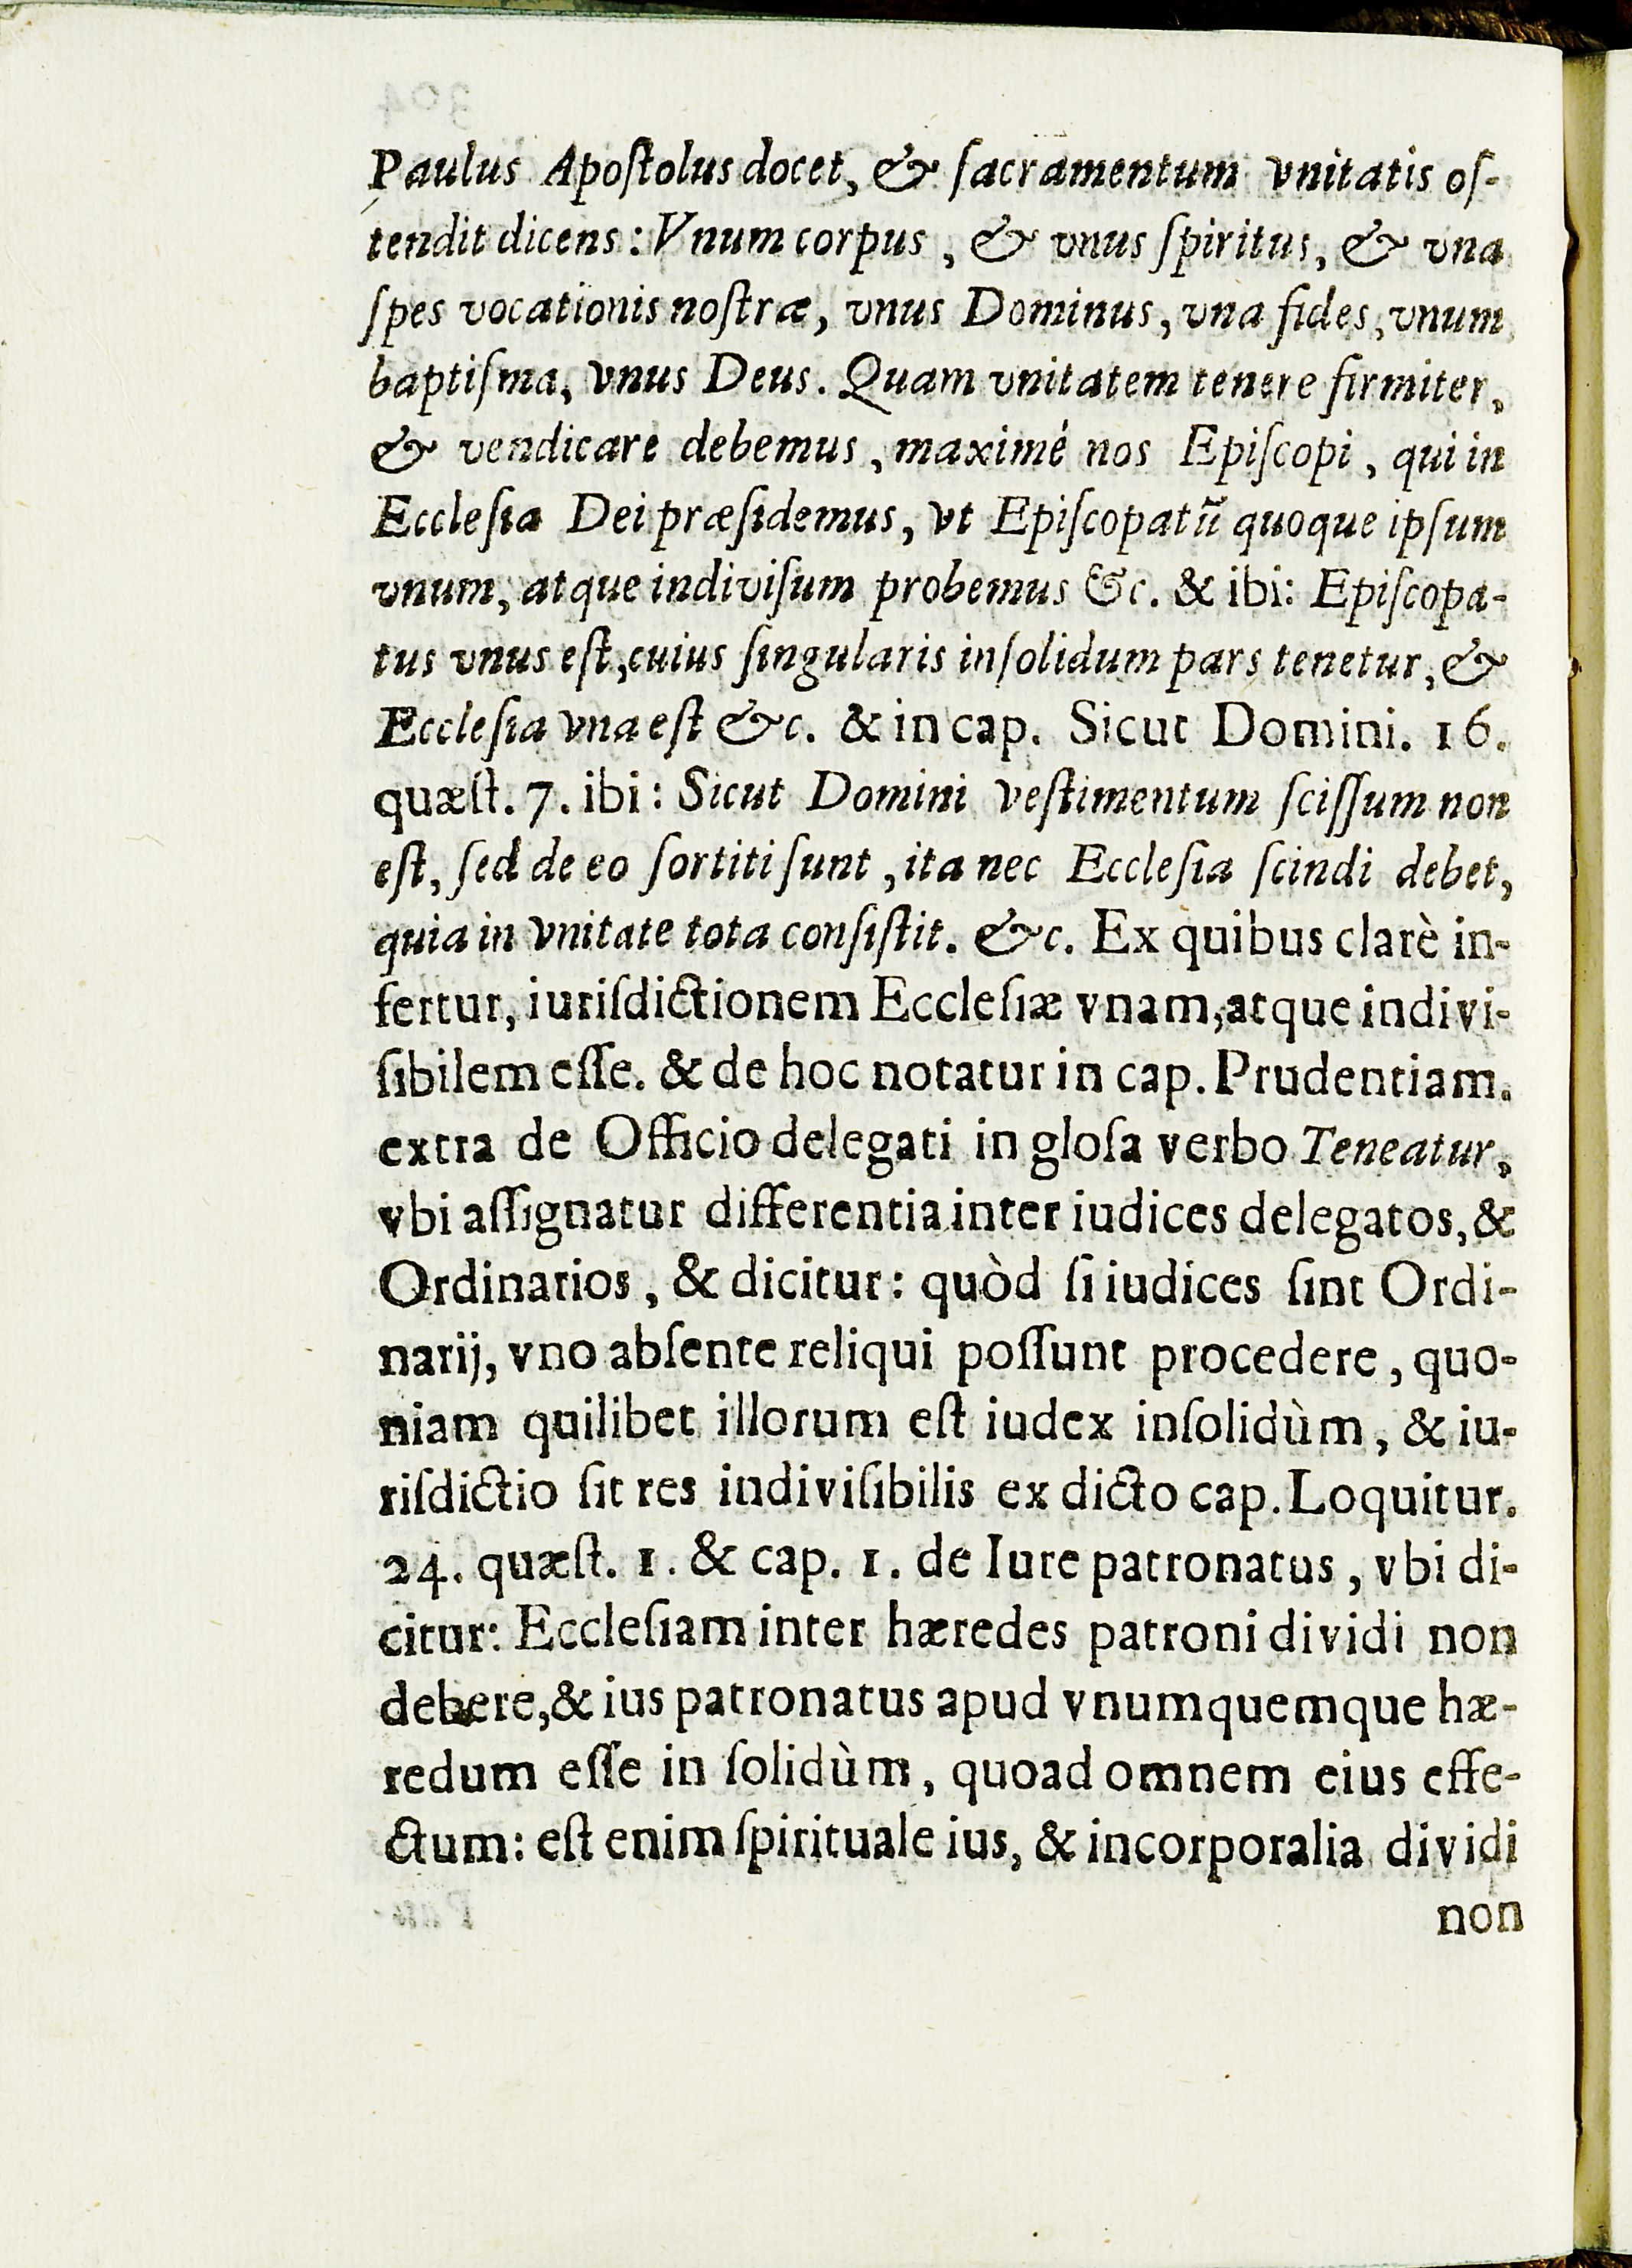 Paulus Apoſtolus docet, & ſacramentum vnitatis oſ-
tendit dicens: Vnum corpus, & vnus ſpiritus, & vna
ſpes vocationis noſtræ, vnus Dominus, vna fides, vnum
baptiſma, vnus Deus. Quam vnitatem tenere firmiter,
& vendicare debemus, maximé nos Epiſcopi, qui in
Eccleſia Dei præſidemus, vt Epiſcopatũ quoque ipſum
vnum, atque indiviſum probemus &c. & ibi: Epiſcopa-
tus vnus eſt, cuius ſingularis inſolidum pars tenetur, &
Eccleſia vna eſt &c. & in cap. Sicut Domini. 16.
quæſt. 7. ibi: Sicut Domini veſtimentum ſciſſum non
eſt, ſed de eo ſortiti ſunt, ita nec Eccleſia ſcindi debet,
quia in vnitate tota conſiſtit. &c. Ex quibus clarè in-
fertur, iuriſdictionem Eccleſiæ vnam, atque indivi-
ſibilem eſſe. & de hoc notatur in cap. Prudentiam.
extra de Officio delegati in gloſa verbo Teneatur,
vbi aſſignatur differentia inter iudices delegatos, &
Ordinarios, & dicitur: quòd ſi iudices ſint Ordi-
narij, vno abſente reliqui poſſunt procedere, quo-
niam quilibet illorum eſt iudex inſolidùm, & iu-
riſdictio ſit res indiviſibilis ex dicto cap. Loquitur.
24. quæſt. 1. & cap. 1. de Iure patronatus, vbi di-
citur: Eccleſiam inter hæredes patroni dividi non
debere, & ius patronatus apud vnumquemque hæ-
redum eſſe in ſolidùm, quoad omnem eius effe-
ctum: eſt enim ſpirituale ius, & incorporalia dividi
non